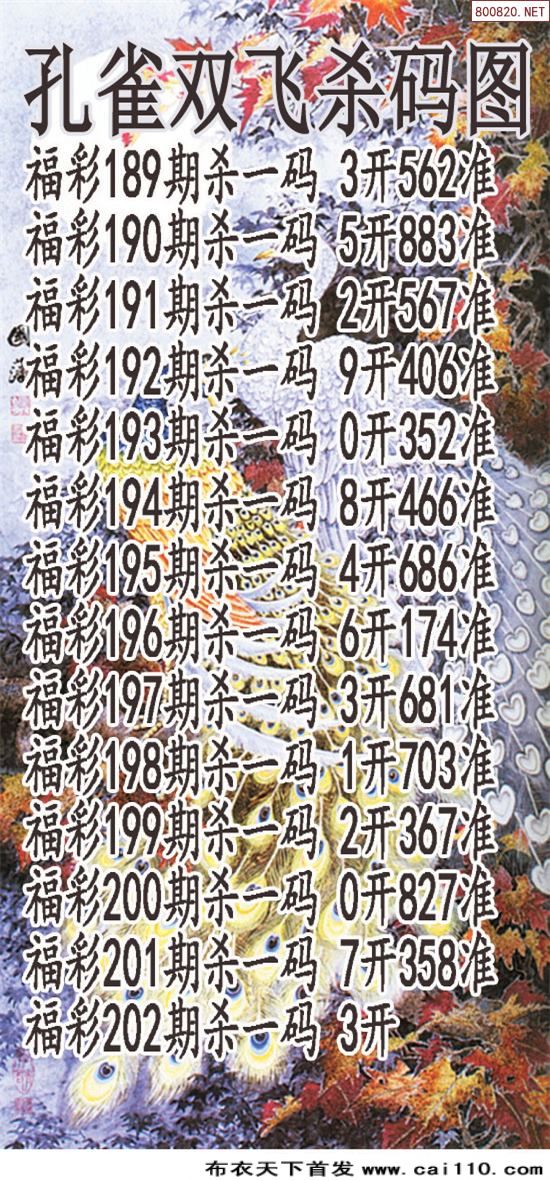 800820.NET
孔雀双飞杀码图
福彩189期杀一码 3开562准
福彩190期杀一码 5开883准
福彩191期杀一码 2开567准
福彩192期杀一码 9开406准
福彩193期杀一码 0开352准
福彩194期杀一码 8开466准
福彩195期杀一码 4开686准
福彩196期杀一码 6开174准
福彩197期杀一码 3开681准
福彩198期杀一码 1开703准
福彩199期杀一码 2开367准
福彩200期杀一码 0开827准
福彩201期杀一码 7开358准
福彩202期杀一码 3开
布衣天下首发 www.cai110.com